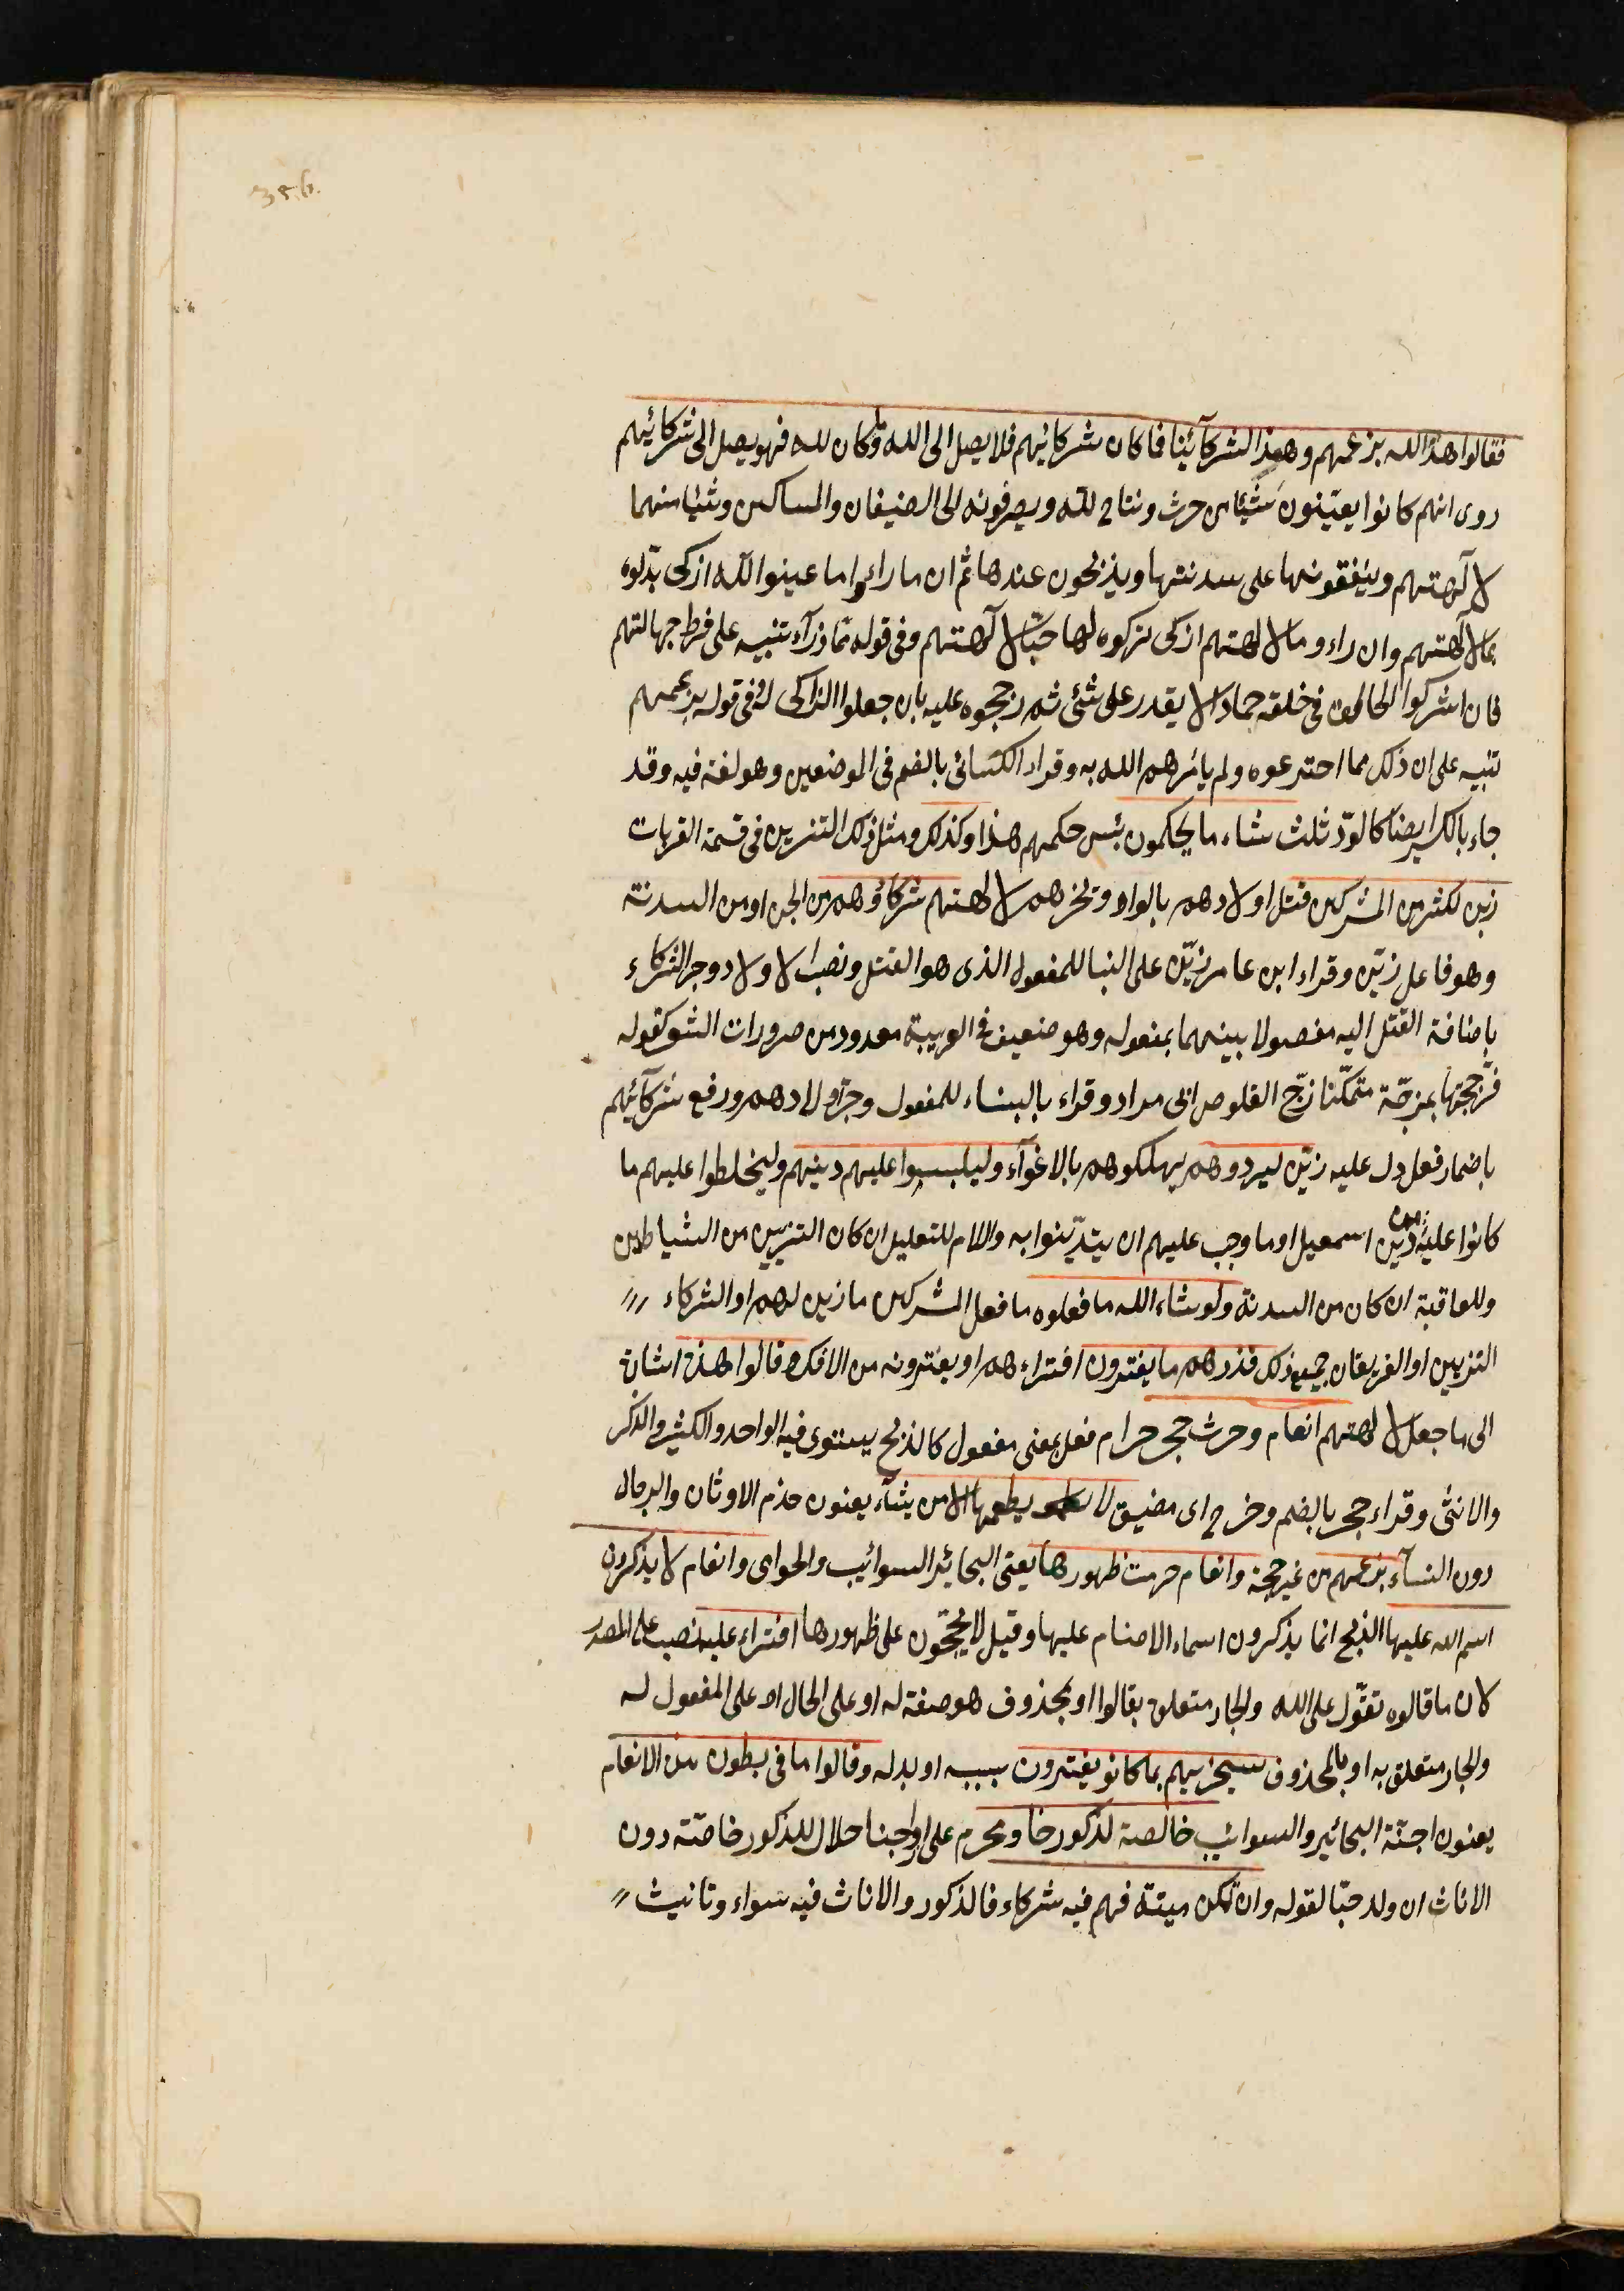 356.
فقالوا هذا لله بزعمهم وهذا الشركآئنا فما كان شركائهم فلا يصل الى الله وما كان لله فهو يصل الى شركائهم
روى انهم كانوا يعيّنون شيئا من حرث ونتاج لله ويصرفونه الى الضيفان والمساكين وشيئا منهما
لآلهتهم وينفقونها على سدنتها ويذبحون عندها ثم ان ما راءوا ما عينوا لله ازكى بدّلوه
بما لآلهتهم وان راءو ما لالهتهم ازكى تركوه لها حبّا لآلهتهم وفى قوله ممّا ذرآء تنبيه على فرط جهالتهم
فان اشركوا الخالق فى خلقه جمادا لا يقدر على شئى ثم رجحوه عليه بان جعلوا الزاكى له وفى قوله بزعمهم
تنبيه على ان ذلك مما اخترعوه ولم يائمرهم الله به وقراء الكسائى بالضم فى الموضعين وهو لغة فيه وقد
جاء بالكسر ايضا كالودّ ثلث ساء ما يحكمون بئس حكمهم هذا وكذلك ومثل ذلك التزيين فى قسمة القربات
زين لكثير من المشركين قتل اولادهم بالواد ونحرهم لالهتهم شركاؤهم من الجن او من السدنة
وهو فاعل زيّن وقراء ابن عامر زيّن على البنا للمفعول الذى هو القتل ونصب الاولاد وجر الشركاء
باضافة القتل اليه مفصولا بينهما بمفعوله وهو ضعيف فى العربية معدود من ضرورات الشعر كقوله
فزججتها بمزجّة متمكّنا زجّ القلوص ابى مراد وقراء بالبناء للمفعول وجرّ اولادهم ورفع شركآئهم
باضمار فعل دل عليه زيّن ليردوهم يهلكوهم بالاغوآء وليلبسوا عليهم دينهم وليخلطوا عليهم ما
كانوا عليه من دين اسمعيل او ما وجب عليهم ان يتديّنوا به والام للتعليل ان كان التزيين من الشياطين
وللعاقبة ان كان من السدنة ولو شاء الله ما فعلوه ما فعل المشركين ما زين لهم او الشركاء
التزيين او الفريقان جميع ذلك فذرهم ما يفترون افتراءهم او يفترونه من الافك وقالوا هذه اشارة
الى ما جعل لالهتهم انعام وحرث حجر حرام فعل بمعنى مفعول كالذبح يستوى فيه الواحد والكثير والذكر
والانثى وقراء حجر بالضم وخرج اى مضيق لا يطعمها الا من يشآء يعنون خدم الاوثان والرجال
دون النسآء بزعمهم من غير حجة وانعام حرمت ظهورها يعنى البحائر السوائب والحوامى وانعام لا يذكرون
اسم الله عليها الذبح انما يذكرون اسماء الاصنام عليها وقيل لا يحجّون على ظهورها افتراء عليه نصب على المصدر
لان ما قالوه تقوّل على الله والجار متعلق بقالوا او بمحذوف هو صفة له او على الحال او على المفعول له
والجار متعلق به او بالمحذوف سيجزيهم بما كانو يفترون بسببه او بدله وقالوا ما فى بطون هذه الانعام
يعنون اجنّة البحائير والسوائب خالصة لذكورنا ومحرم على ازواجنا حلال للذكور خاصّة دون
الاناث ان ولد حيّا لقوله وان تكن ميتة فهم فيه شركاء فالذكور والاناث فيه سواء وتانيث